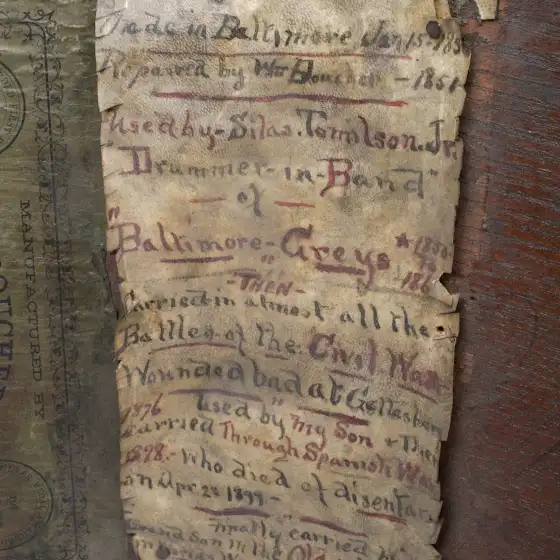 Made in Baltimore Jan 15-185
Repaired by Wm Boucher - 1851
Used by - Silas. Tomlson. Jr.
"Drummer - in - Band"
- of -
"Baltimore - Greys" * 1850
to
186
- THEN -
Carried in almost all the
Battles of the Civil War
Wounded bad at Gettesburg
1876 used by "my Son + Then
carried Through Spanish War
1898. - who died of disentary
on Apr 28 1899 -
finally carried by
Grand Son in the
MANUFACTURED BY
OUCHER